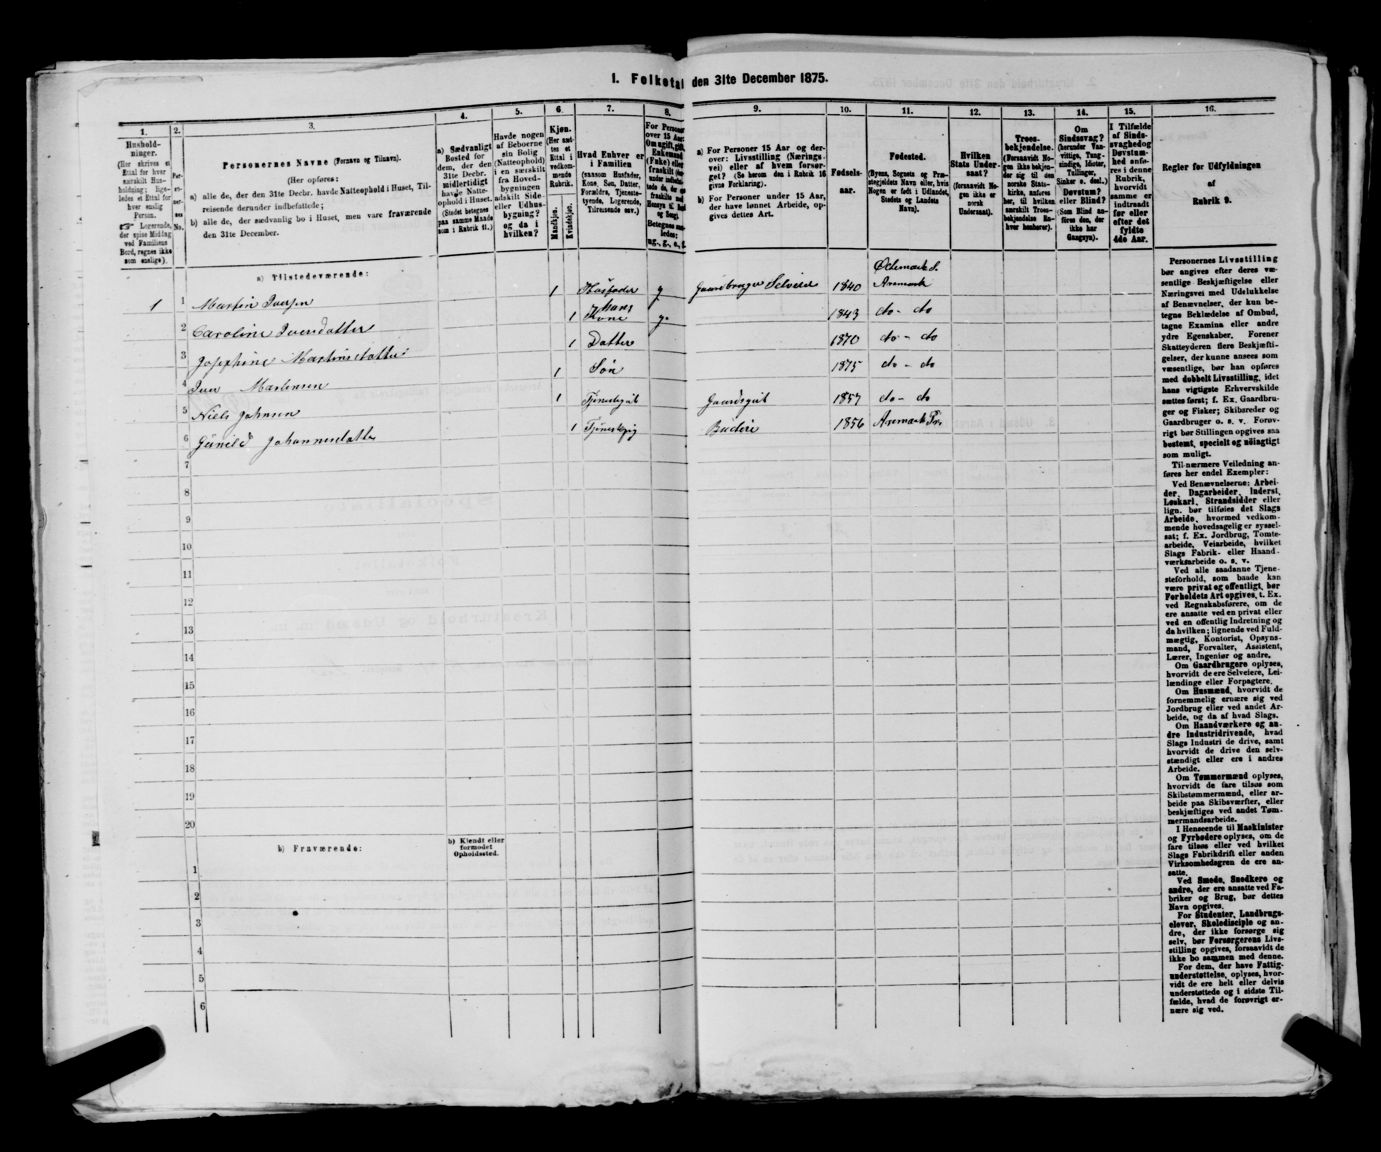 I. Folketal den 31te December 1875.
1.
Hushold-
ninger.
(Her skrives et
Ettal for hver
særskilt Hus-
holdning; lige-
ledes et Ettal for
hver enslig
Person.
Logerende,
der spise Middag
ved Familiens
Bord, regnes ikke
som enslige).
2.
No.
3.
Personernes Navne (Fornavn og Tilnavn).
(Her opføres:
a) alle de, der den 31te Decbr. havde Natteophold i Huset, Til-
reisende derunder indbefattede;
b) alle de, der sædvanlig bo i Huset, men vare fraværende
den 31te December.
4.
a) Sædvanligt
Bosted for
dem, der den
31te Decbr.
midlertidigt
havde Natte-
ophold i Huset.
(Stedet betegnes
paa samme Maade
som i Rubrik 11.)
5.
Havde nogen
af Beboerne
sin Bolig
(Natteophold)
i en særskilt
fra Hoved-
bygningen
adskilt Side-
eller Udhus-
bygning?
og da i
hvilken?
6.
Kjøn.
(Her sæt-
tes et
Ettal i
vedkom-
mende
Rubrik.
Mandkjøn.
Kvindekjøn.
7.
Hvad Enhver er
i Familien
(saasom Husfader,
Kone, Søn, Datter,
Forældre, Tjeneste-
tyende, Logerende,
Tilreisende osv.)
8.
For Personer
over 15 Aar:
Om ugift, gift,
Enkemand
(Enke) eller
fraskilt
9.
a) For Personer 15 Aar og der-
over: Livsstilling (Nærings-
vei) eller af hvem forsør-
get? (Se herom den i Rubrik 16
givne Forklaring).
b) For Personer under 15 Aar,
der have lønnet Arbeide, op-
gives dettes Art.
10.
Fødsels-
aar.
11.
Fødested.
(Byens, Sognets og Præ-
stegjeldets Navn eller, hvis
Nogen er født i Udlandet,
Stedets og Landets
Navn).
12.
Hvilken
Stats Under-
saat?
(forsaavidt No-
gen ikke er
norsk
Undersaat).
13.
Troes-
bekjendelse.
(Forsaavidt No-
gen ikke bekjen-
der sig til den
norske Stats-
kirke, anføres
her, til hvilken
særskilt Troes-
bekjendelse En-
hver henhører).
14.
Om
Sindssvag?
(herunder Van-
vittige, Tung-
sindige, Idioter,
Tullinger,
Sinker o. desl.)
Døvstum?
eller Blind?
(Som Blind an-
føres den, der
ikke har
Gangsyn).
15.
I Tilfælde
af Sinds-
svaghed og
Døvstum-
hed anfø-
res i denne
Rubrik,
hvorvidt
samme er
indtraadt
før eller
efter det
fyldte
4de Aar.
16.
Regler for Udfyldningen
af
Rubrik 9.
a) Tilstedeværende:
1 1 Martin Iversen 1 Husfader g Gaardbruger Selveier 1840 Ødemark S. Aremark
2 Caroline Iversdatter 1 hans Kone g. 1843 do - do
3 Josephine Martinsdatter 1 Datter 1870 do - do
4 Iver Martinsen 1 Søn 1875 do - do
5 Niels Johnsen 1 Tjenestgut Gaardsgut 1857 do - do
6 Gunild Johannesdatter 1 Tjenestpig Budeie 1856 Aremark Pr.
7
8
9
10
11
12
13
14
15
16
17
18
19
20
b) Fraværende:
b) Kjendt eller
formodet
Opholdssted.
1
2
3
4
5
6
Personernes Livsstilling
bør angives efter deres væ-
sentlige Beskjæftigelse eller
Næringsvei med Udelukkelse
af Benævnelser, der kun be-
tegne Beklædelse af Ombud,
tagne Examina eller andre
ydre Egenskaber. Forener
Skatteyderen flere Beskjæfti-
gelser, der kunne ansees som
væsentlige, bør han opføres
med dobbelt Livsstilling, idet
hans vigtigste Erhvervskilde
sættes først; f. Ex. Gaardbru-
ger og Fisker; Skibsreder og
Gaardbruger o. s. v. Forøv-
rigt bør Stillingen opgives saa
bestemt, specielt og nøiagtigt
som muligt.
Til nærmere Veiledning an-
føres her endel Exempler:
Ved Benævnelserne: Arbei-
der, Dagarbeider, Inderst,
Løskarl, Strandsidder eller
lign. bør tilføies det Slags
Arbeide, hvormed vedkom-
mende hovedsagelig er syssel-
sat; f. Ex. Jordbrug, Tomte-
arbeide, Veiarbeide, hvilket
Slags Fabrik- eller Haand-
værksarbeide o. s. v.
Ved alle saadanne Tjene-
steforhold, som baade kan
være privat og offentligt, bør
Forholdets Art opgives, t. Ex.
ved Regnskabsførere, om de
ere ansatte ved en privat eller
ved en offentlig Indretning og
da hvilken; lignende ved Fuld-
mægtig, Kontorist, Opsyns-
mand, Forvalter, Assistent,
Lærer, Ingeniør og andre.
Om Gaardbrugere oplyses,
hvorvidt de ere Selveiere, Lei-
lændinge eller Forpagtere.
Om Husmænd, hvorvidt de
fornemmelig ernære sig ved
Jordbrug eller ved andet Ar-
beide, og da af hvad Slags.
Om Haandværkere og an-
dre Industridrivende, hvad
Slags Industri de drive, samt
hvorvidt de drive den selv-
stændigt eller ere i andres
Arbeide.
Om Tømmermænd oplyses,
hvorvidt de fare tilsøs som
Skibstømmermænd, eller ar-
beide paa Skibsværfter, eller
beskjæftiges ved andet Tøm-
mermandsarbeide.
I Henseende til Maskinister
og Fyrbødere oplyses, om de
fare tilsøs eller ved hvilket
Slags Fabrikdrift eller anden
Virksomhedsgren de ere an-
satte.
Ved Smede, Snedkere og
andre, der ere ansatte ved Fa-
briker og Brug, bør dettes
Navn opgives.
For Studenter, Landbrugs-
elever, Skoledisciple og an-
dre, der ikke forsørge sig
selv, bør Forsørgerens Livs-
stilling opgives, forsaavidt de
ikke bo sammen med denne.
For dem, der have Fattig-
understøttelse, oplyses, hvor-
vidt de ere helt eller delvis
understøttede og i sidste Til-
fælde, hvad de forøvrigt er-
nære sig ved.